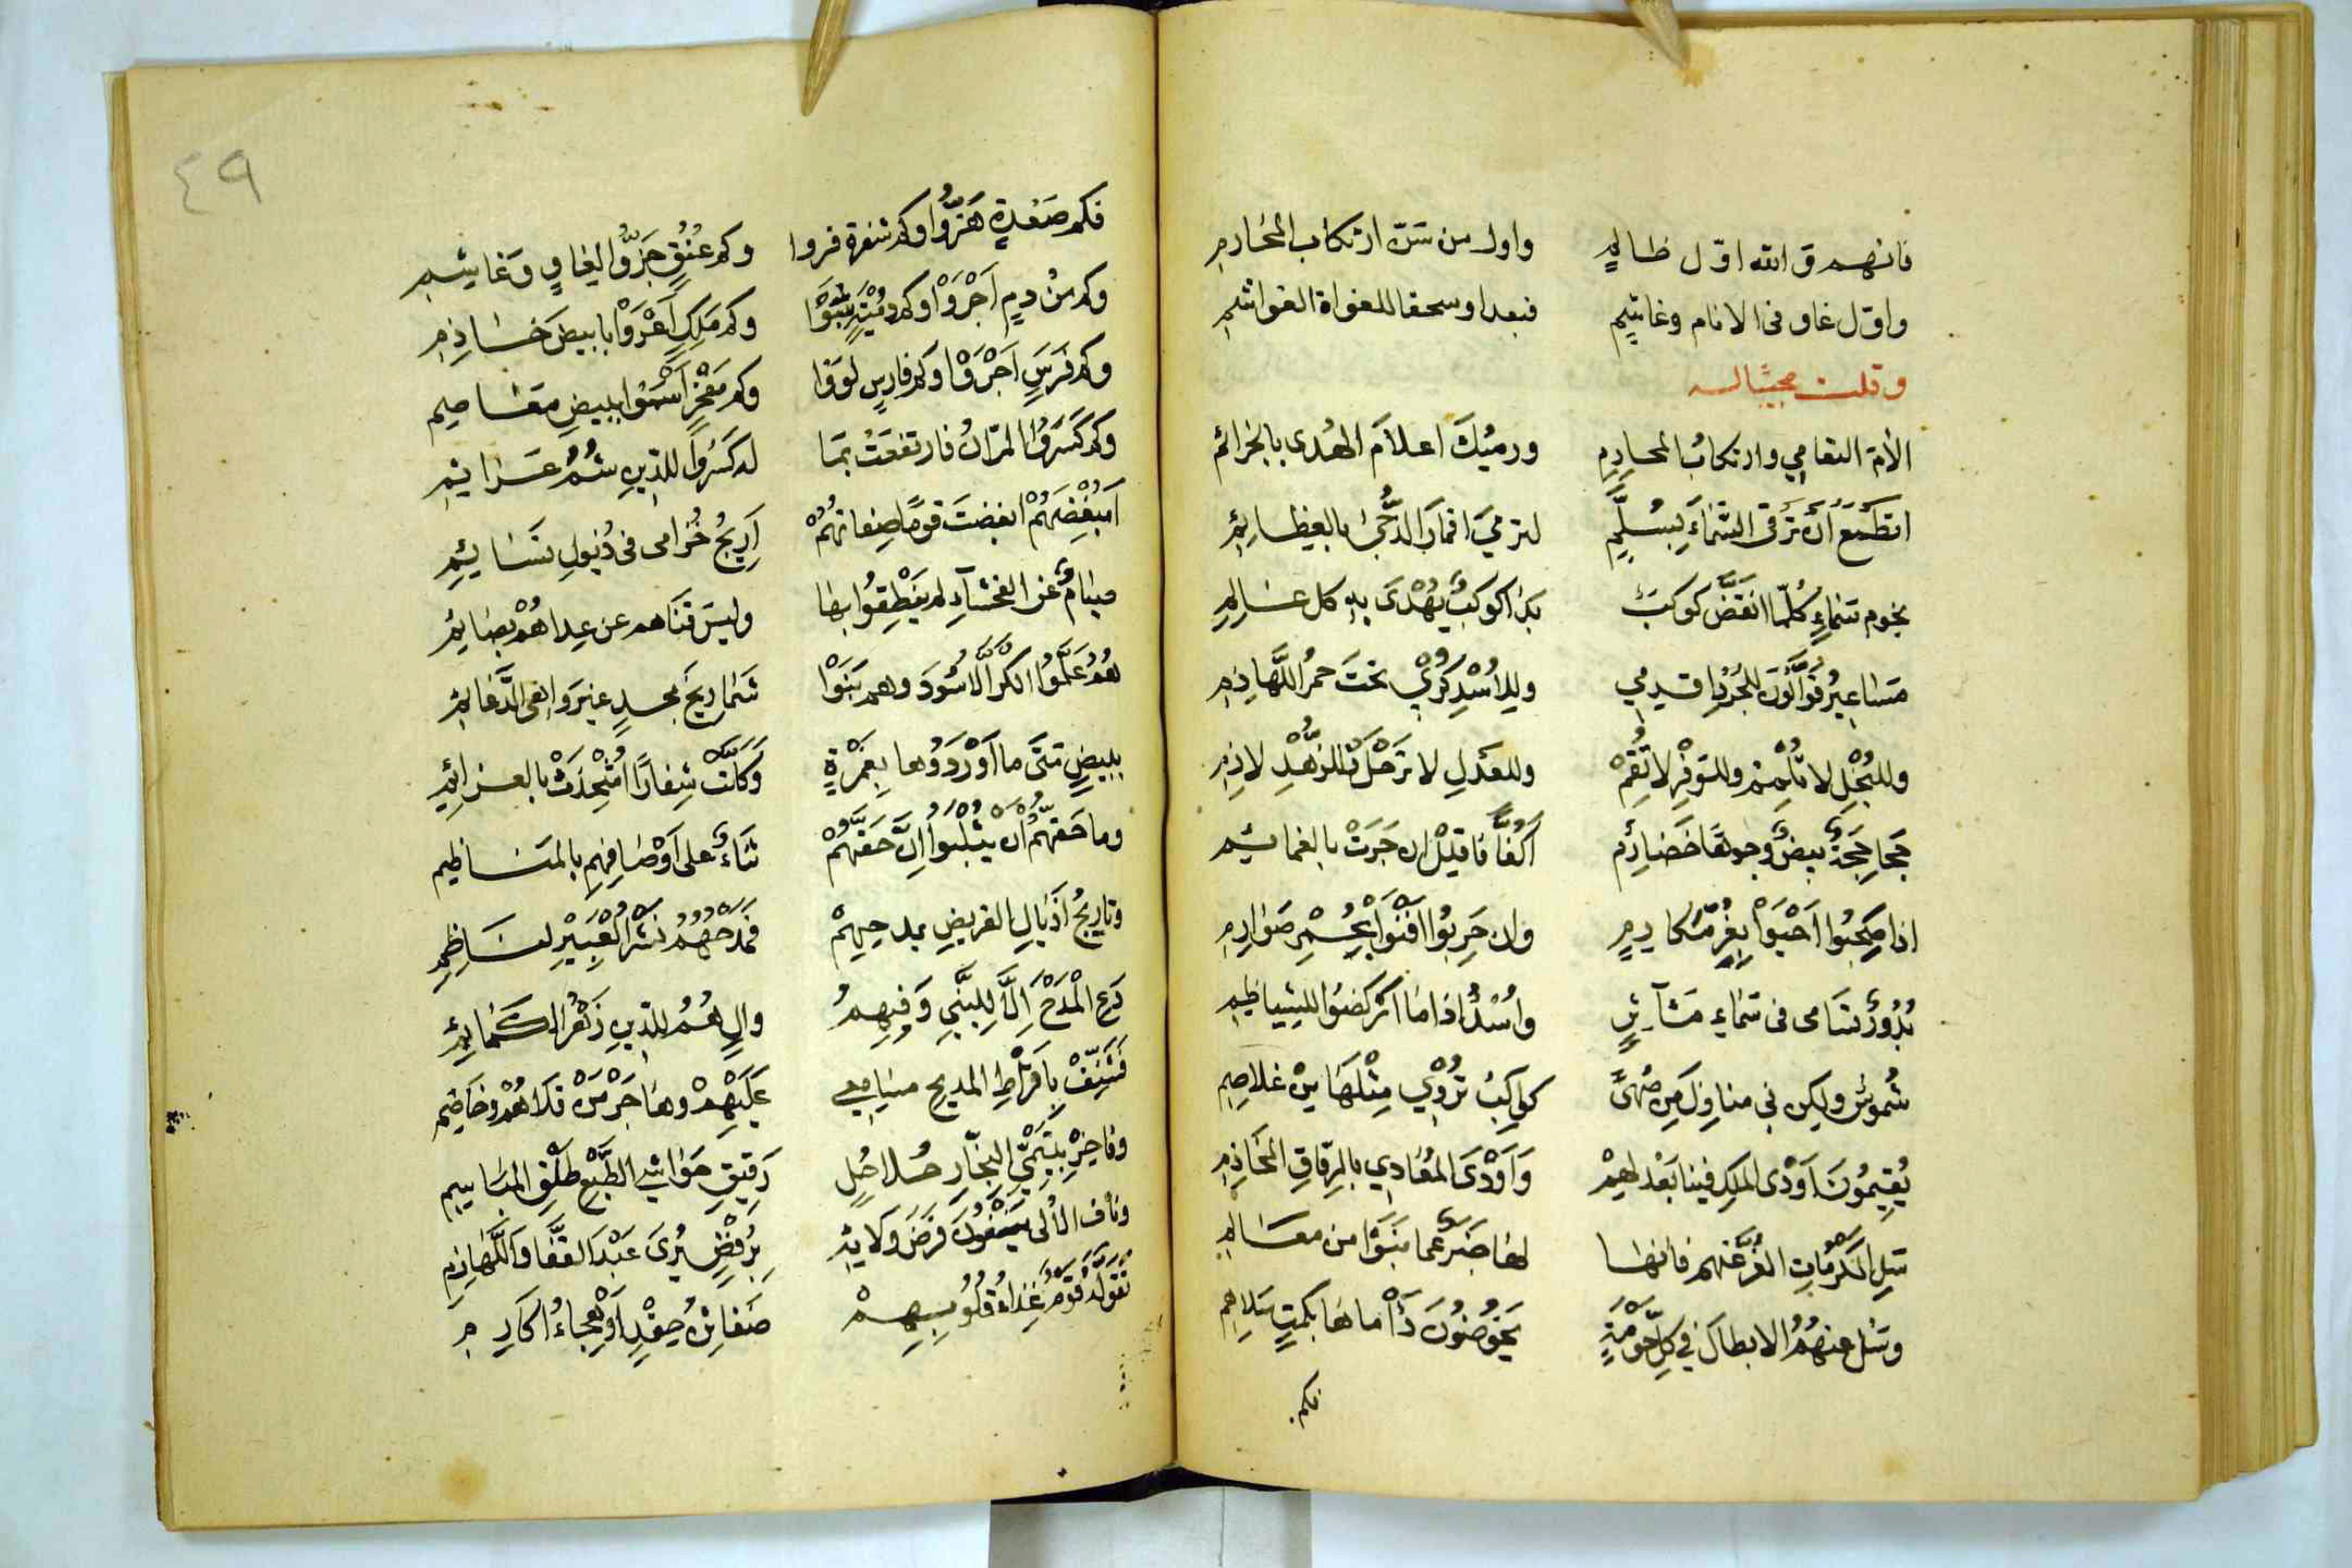 فانهم والله اول ظالم واول من سن ارتكاب المحارم
واول غاو فى الانام وغاشم فبعدا وسحقا للغواة الغواشم
وقلت مجيبًا له
الأم التعامي وارتكابُ المحارم ورميُكَ اعلامَ الهُدى بالجرائم
اتطمَعُ أن ترقى السماءَ بسُلّمٍ لترميَ اقمارَ الدُّجى بالعظائم
نجوم سماءٍ كلّما انقضَّ كوكبٌ بدا كوكبٌ يُهْدَى بهِ كل عالم
مساعيرُ قوّالُونَ للجُرْدِ اقدمي وللأُسْدِ كُرِّي تحتَ حمرُ اللَّهاذم
وللبُخْلِ لا تُلْمِمْ وللوَفْرِ لا تُقِمْ وللعَدْلِ لا ترحَلْ وللزُّهْدِ لازم
جحاجِحةٌ بيضٌ وجوهًا خضارمٌ أكُفًّا فاقلِلْ ان جَرَتْ بالغمائم
اذا صُحِبُوا أحْيَوْا بِغُرِّ مكارمٍ وان حُرِبُوا افْنَوْا بحُمْرِ صوارم
بُدُورٌ تسَامى فى سَماءِ مآثرٍ وأُسْدٌ اذا ما اركضوا للشياظم
شُموسٌ ولكن في منازلَ مِن نُهىً كواكبُ تُرْوِي مِثْلَها من غلاصم
يُقِيمُونَ أوْدى الملكِ فينا بعَدْلهِمْ وَأوْدَى المُعَادِي بالرِّقاقِ المخاذم
سَلِ المكرُمَاتِ الغُرَّ عنهم فانها لها خبَرٌ عما بنَوْا من معالم
وسَل عنهُمُ الابطالَ في كلِّ حَوْمَةٍ يخوضُونَ دأْماها بكُمتٍ سَلاهم
فكم
٤٩
فكم صَعْدةٍ هَزُّوا وكم شفرة فروا وكم عُنُقٍ جَزُّوا لغاوٍ وغاشم
وكم مِنْ دمٍ أجْرَوْا وكم دِمْيَةٍ سَبَوْا وكم مَلِكٍ أعْرَوْا بابيضَ خاذم
وكم فَرَسٍ أجْرَوْا وكم فارسٍ لوَوْا وكم مَفْخَرٍ أسْمَوْا ببيضِ معاصم
وكم كَسَرُوا المرّانَ فارتفعَتْ بمَا له كسَرُوا للدِّينِ شُمُّ عزائم
أمُبْغِضَهُمْ ابغضتَ قومًا صِفاتهُمْ أرِيجُ خُزامى فى ذُيولِ نسَائم
صيامٌ عن الفحشاءِ لم ينْطِقُوا بها وليسَ قنَاهم عن عِداهُمْ بصائم
هُمُ علَّمُوا الكرَّ الاُسُودَ وهم بَنَوْا شماريخَ مجدٍ غيرَ واهى الدَّعائم
ببيضٍ متَى ما أوْرَدُوها بِغَمْرَةٍ وكَلَّتْ شِفارًا اُشْحِذَتْ بالعزائم
وما حَقّهُمْ أن يُثْلَبُوا انَّ حَقّهُمْ ثناءٌ على أوْصَافِهِم بالمناظيم
وتاريجُ أذيالِ القريضِ بمدحِهِمْ فمَدْحُهُمُ نشْرُ العَبِيْرِ لناظم
دَعِ الْمَدْحَ إلَّا لِلنَّبيِ وَفِيهِمُ وآلٍ هُمُ للدِّينِ زَهْرُ الكمائم
فَشَنِّفْ بِأقْرَاطِ المديحِ مسَامعي عَلَيْهِمْ وهَاجِرْ مَنْ قلاهُمْ وخاصم
وفاخِرْ بتَيْمِيِّ النِّجَارِ حُلاحُلٍ رَقِيقِ حَواشي الطَّبْعِ طَلْقِ المبَاسم
وناف الأُلى يَنْفُونَ فَرْضَ وَلايَةٍ بِرَفْضٍ يُرَى عَبْدَ القَفَا واللَّهاذم
تقَوَّلَهُ قومٌ غِذاءُ قُلُوبِهِمْ ضغائنُ حِقْدٍ أوْ هِجاءُ اكارم